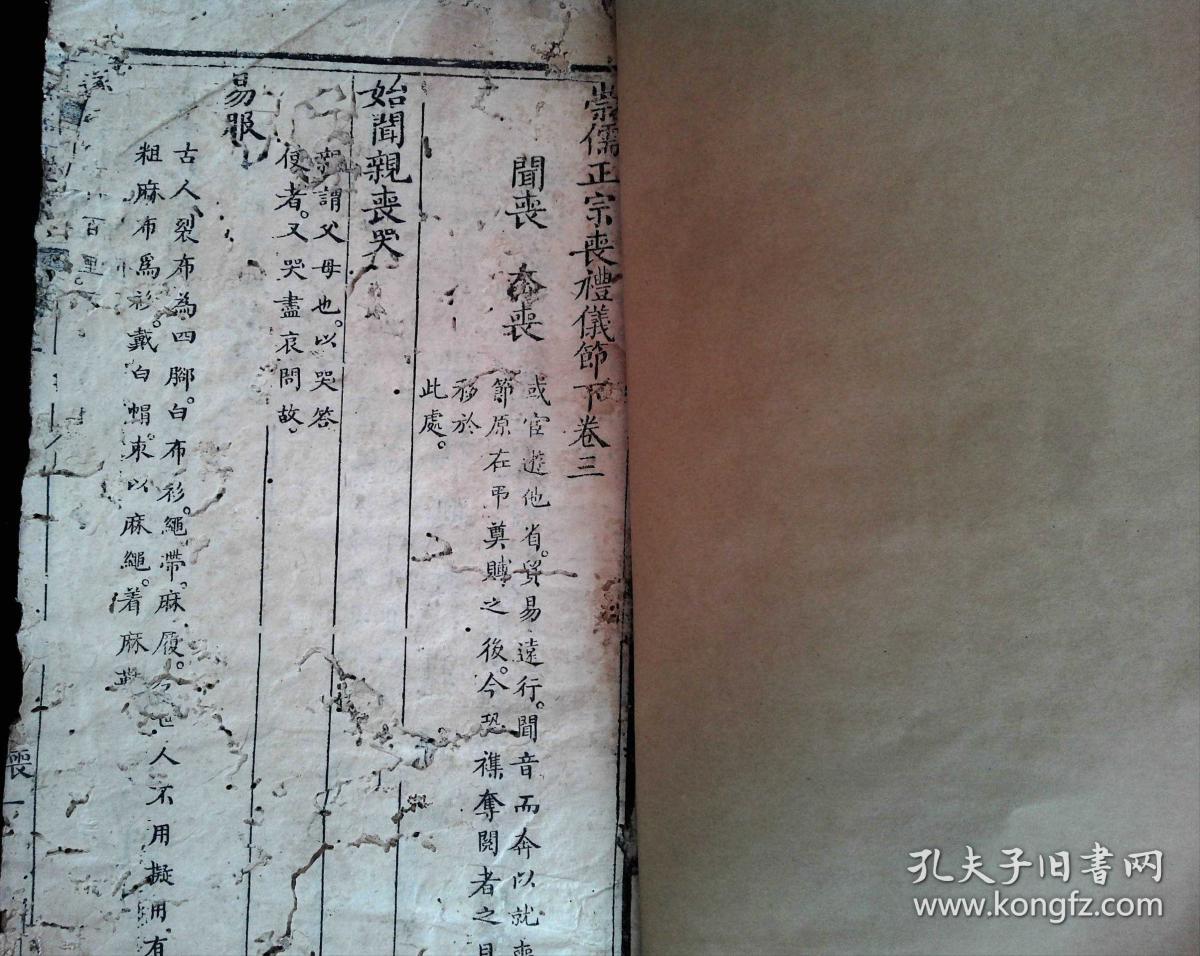 崇儒正宗喪禮儀節下卷三
聞喪 奔喪
或宦遊他省。貿易遠行。聞音而奔以就喪
節原在弔奠賻之後。今恐襍奪閱者之目
移於
此處。
始聞親喪哭
親謂父母也。以哭答
使者。又哭盡哀問故。
易服
古人裂布為四腳。白布衫。繩帶。麻履。今世人不用擬用有
粗麻布爲衫。戴白帽。束以麻繩。着麻鞋
遂 百里。
喪
孔夫子旧书网
www.kongfz.com